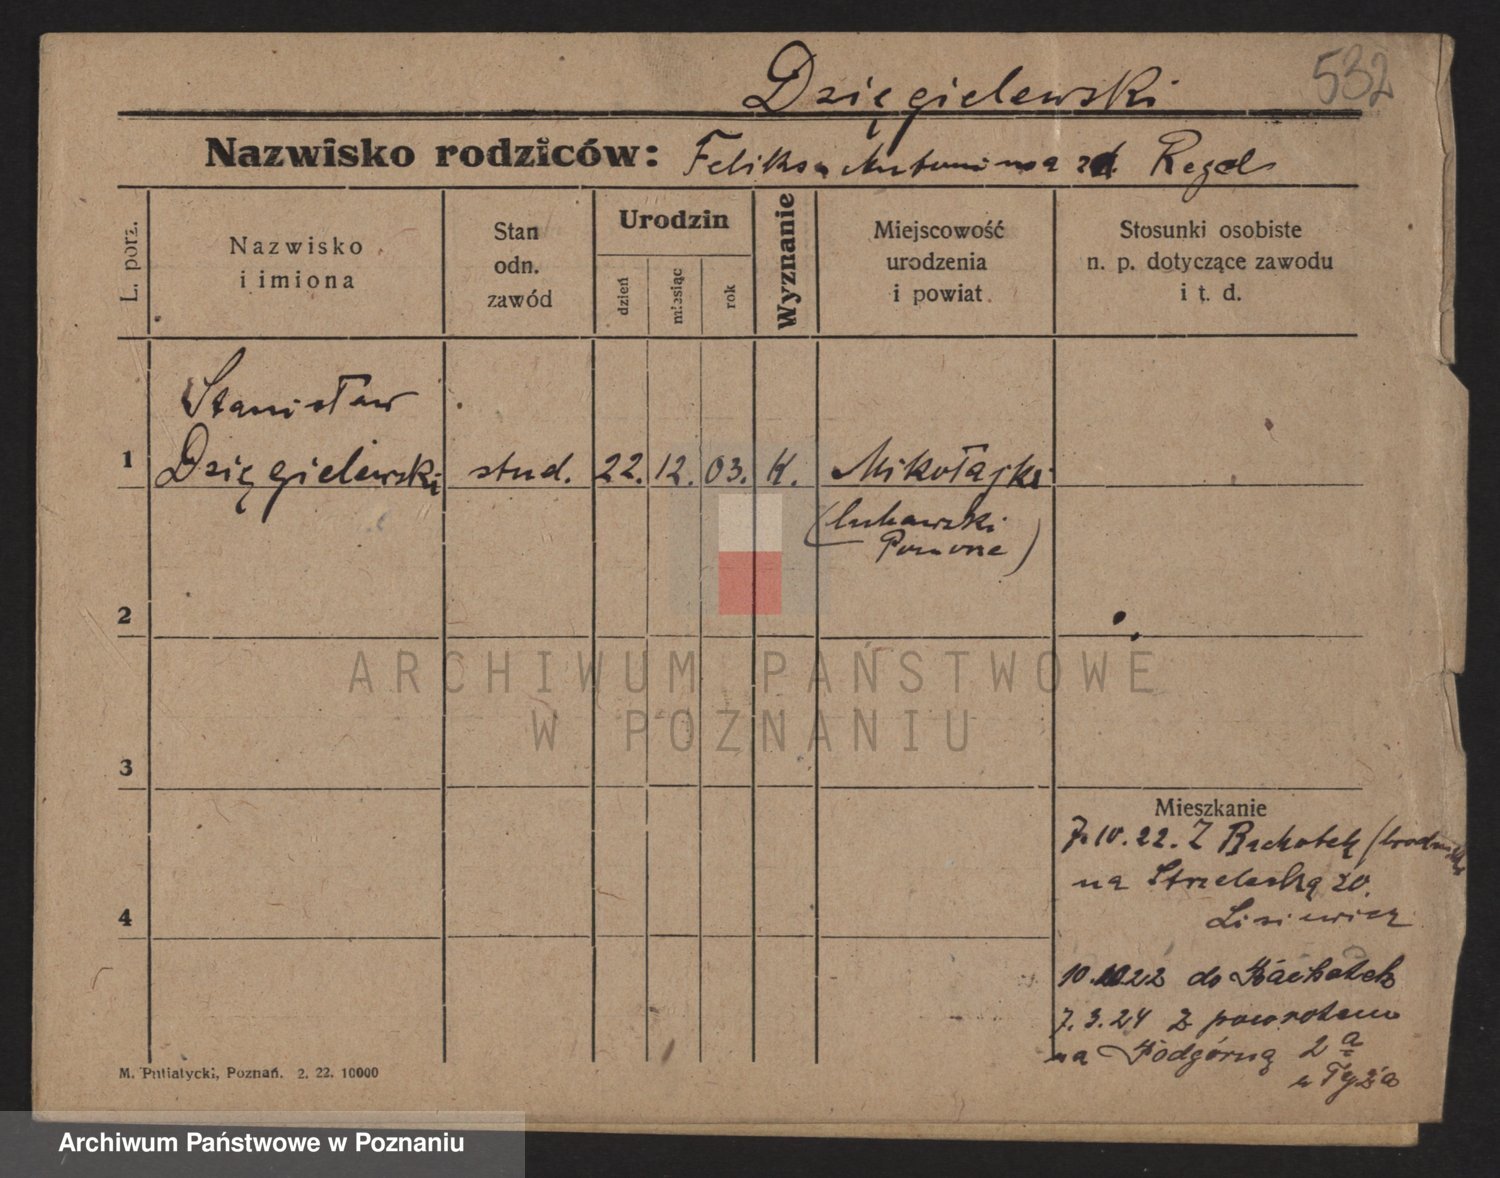 532
Dzięgielewski
Nazwisko rodziców: Feliks Antonina zd. Regel
L. porz.
Nazwisko
i imiona
Stan
odn.
zawód
Urodzin
dzień
miesiąc
rok
Wyznanie
Miejscowość
urodzenia
i powiat
Stosunki osobiste
n. p. dotyczące zawodu
i t. d.
Stanisław
1 Dzięgielewski stud. 22. 12. 03. K. Mikołajki
(lubawski
Pomorze)
2
ARCHIWUM PAŃSTWOWE
W POZNANIU
3
Mieszkanie
7.10.22. Z Bachotek
na Strzelecką 20.
4
10.22 do Bachotek
7.3.24 z powrotem
na Podgórną 2 a
M. Putiatycki, Poznań. 2. 22. 10000
Archiwum Państwowe w Poznaniu